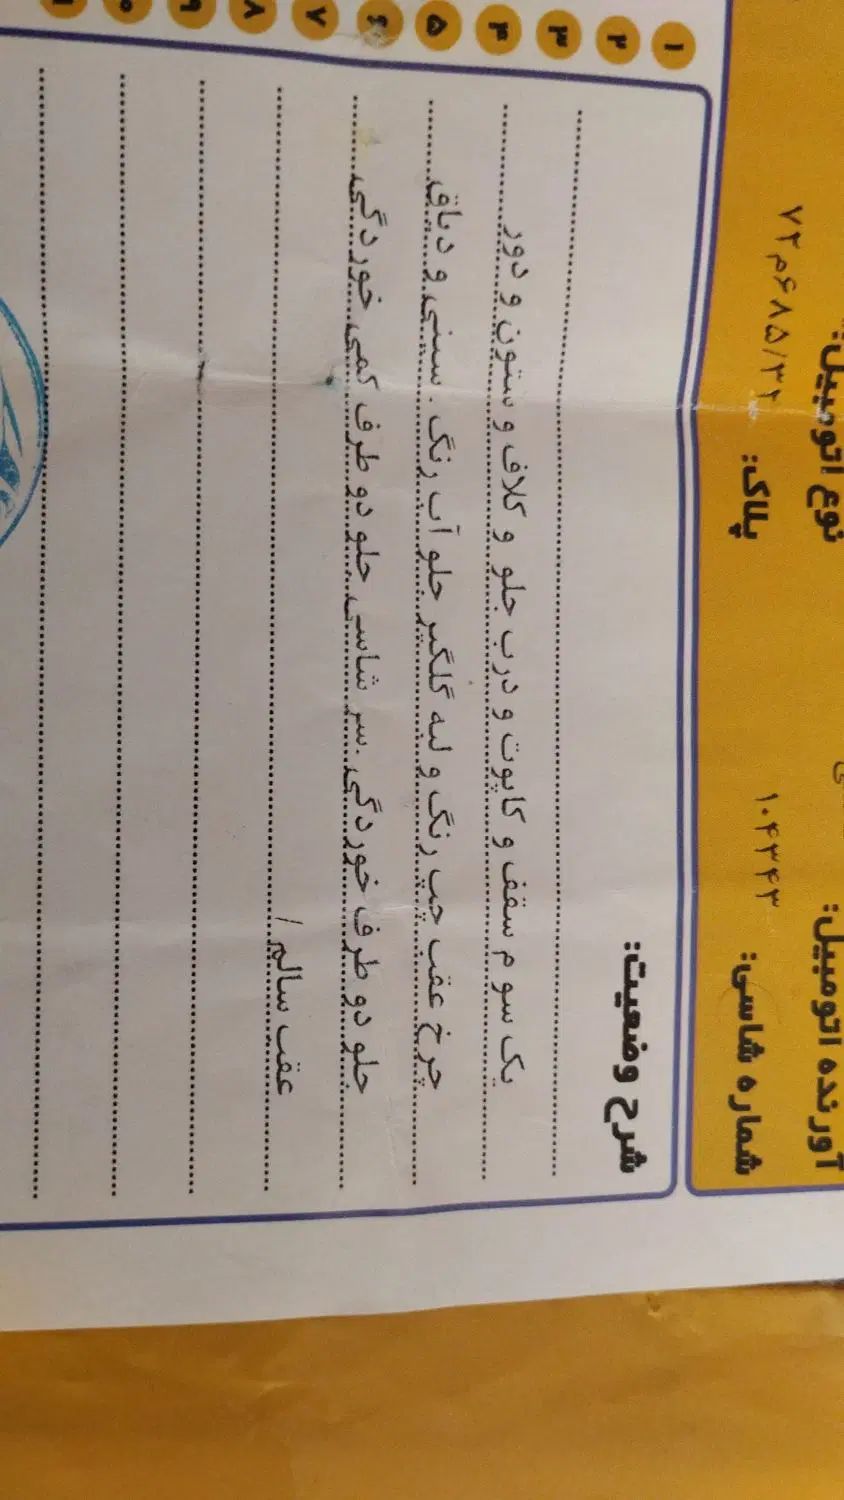 نوع اتومبیل:
آورنده اتومبیل:
پلاک: ۷۲م۶۸۵/۳۲
شماره شاسی: ۱۰۴۳۴۳
۱ ۲ ۳ ۴ ۵ ۶ ۷ ۸ ۹
شرح وضعیت:
یک سوم سقف و کاپوت و درب جلو و کلاف و ستون و دور
چرخ عقب چپ رنگ و لبه گلگیر جلو آب رنگ. سینی و دیاق
جلو دو طرف خوردگی. سر شاسی جلو دو طرف کمی خوردگی
عقب سالم /